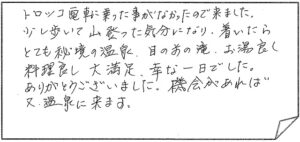 トロッコ電車に乗った事がなかったので来ました。
少し歩いて山登った気分になり、着いたら
とても秘境の温泉、目の前の滝、お湯良し
料理良し 大満足、幸な一日でした。
ありがとうございました。機会があれば
又温泉に来ます。